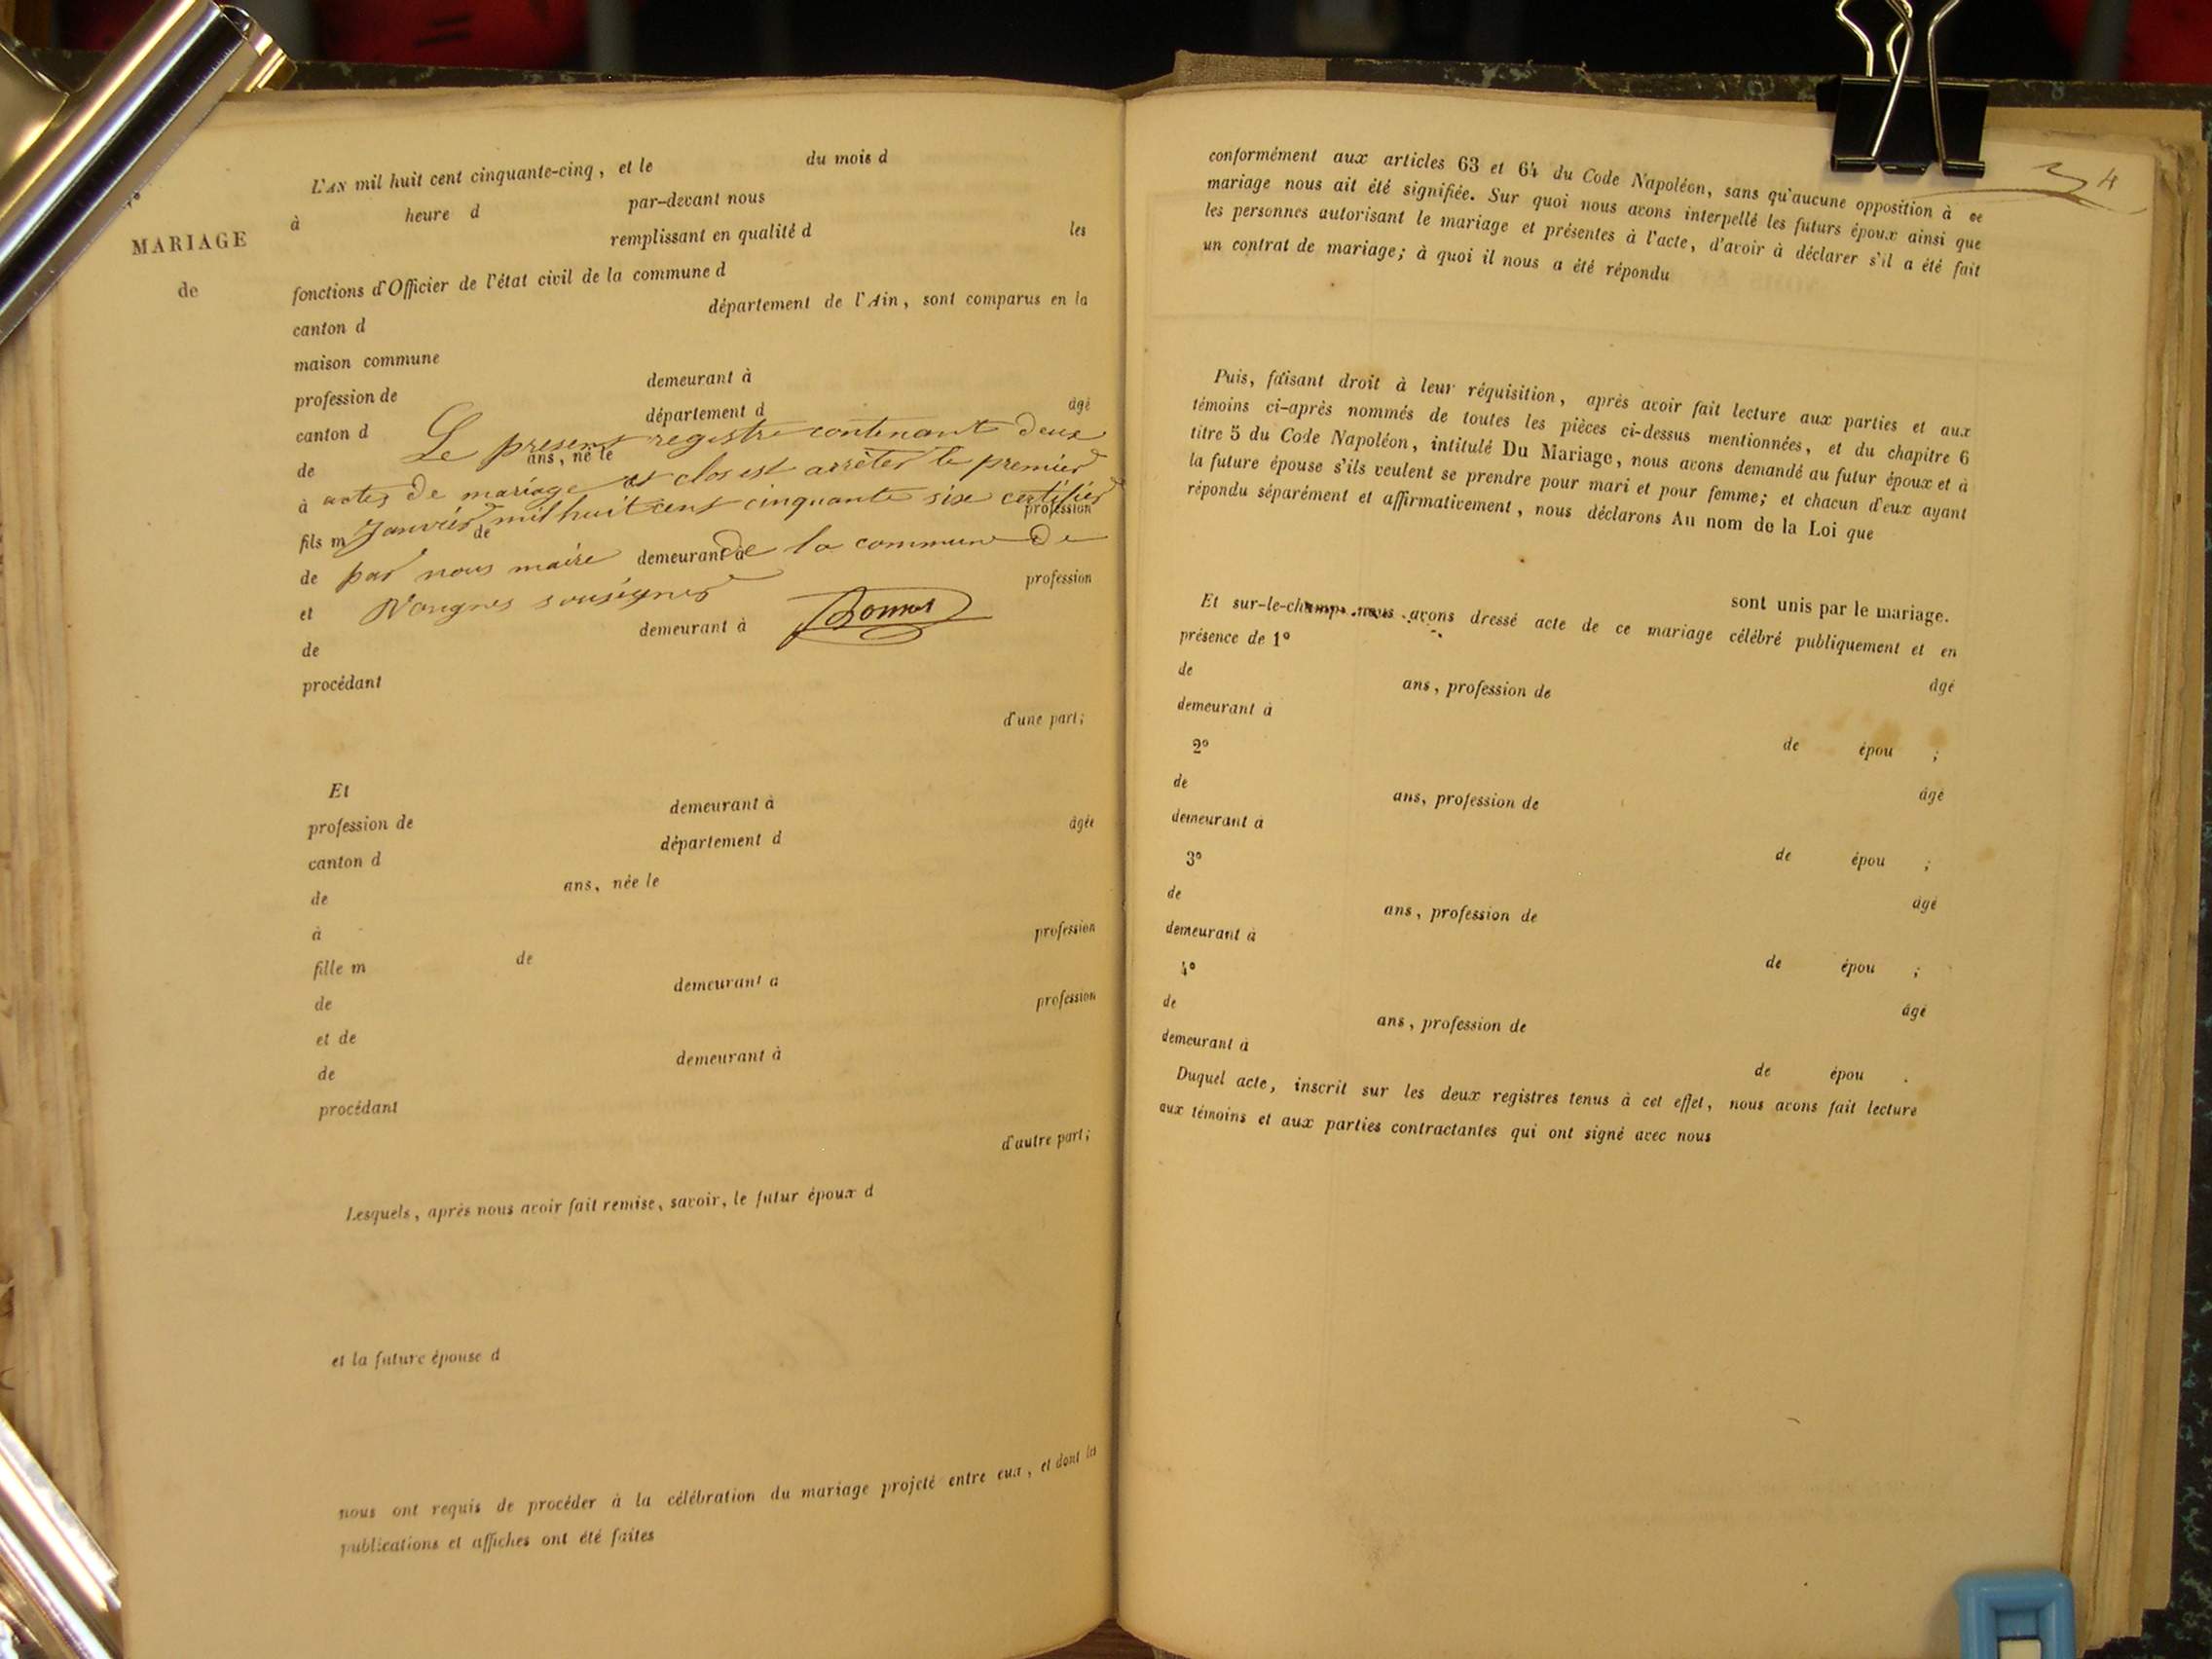 MARIAGE
de
L'AN mil huit cent cinquante-cinq, et le du mois d
à heure d par-devant nous
remplissant en qualité d les
fonctions d'Officier de l'état civil de la commune d
canton d département de l'Ain, sont comparus en la
maison commune
profession de demeurant à
canton d département d âgé
Le present registre contenant deux
de ans, né le
à actes de mariage et clos est arrêter le premier
profession
fils m de
Janvier mil huit cent cinquante six certifier
de demeurant à
par nous maire de la commune de
et profession
Vongnes sousigner
Bonnet
de demeurant à
procédant
d'une part;
Et
profession de demeurant à
canton d département d âgée
de ans, née le
à
fille m de profession
de demeurant a
et de profession
de demeurant à
procédant
d'autre part;
Lesquels, après nous avoir fait remise, savoir, le futur époux d
et la future épouse d
nous ont requis de procéder à la célébration du mariage projeté entre eux, et dont les
publications et affiches ont été faites
4
conformément aux articles 63 et 64 du Code Napoléon, sans qu'aucune opposition à ce
mariage nous ait été signifiée. Sur quoi nous avons interpellé les futurs époux ainsi que
les personnes autorisant le mariage et présentes à l'acte, d'avoir à déclarer s'il a été fait
un contrat de mariage; à quoi il nous a été répondu
Puis, faisant droit à leur réquisition, après avoir fait lecture aux parties et aux
témoins ci-après nommés de toutes les pièces ci-dessus mentionnées, et du chapitre 6
titre 5 du Code Napoléon, intitulé Du Mariage, nous avons demandé au futur époux et à
la future épouse s'ils veulent se prendre pour mari et pour femme; et chacun d'eux ayant
répondu séparément et affirmativement, nous déclarons Au nom de la Loi que
sont unis par le mariage.
Et sur-le-champ nous avons dressé acte de ce mariage célébré publiquement et en
présence de 1º
de ans, profession de âgé
demeurant à
2º de épou ;
de ans, profession de âgé
demeurant à
3º de épou ;
de ans, profession de âgé
demeurant à
4º de épou ;
de ans, profession de âgé
demeurant à
de épou .
Duquel acte, inscrit sur les deux registres tenus à cet effet, nous avons fait lecture
aux témoins et aux parties contractantes qui ont signé avec nous